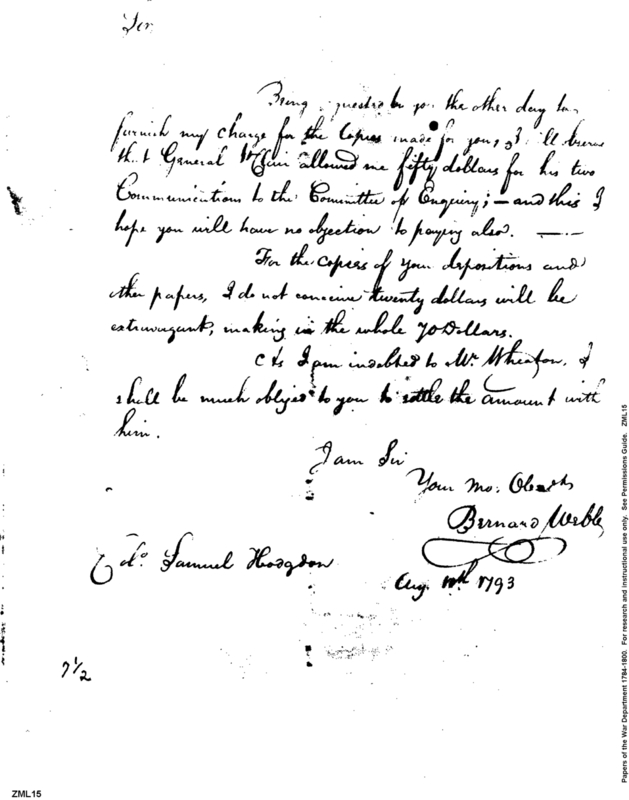 Sir
Being requested by you the other day to
furnish my charge for the Copies made for you, I'll observe
that General St Clair allowed me fifty dollars for his two
Communications to the Committee of Enquiry; — and this I
hope you will have no objection to paying also. —
For the copies of your depositions and
other papers, I do not conceive twenty dollars will be
extravagant, making in the whole 70 Dollars.
As I am indebted to Mr. Wheaton, I
shall be much obliged to you to settle the amount with
him.
I am Sir
Your Mo. Obed
Bernard Webb
Colo. Samuel Hodgdon
Aug. 1793
7 1/2
ZML15
Papers of the War Department 1784-1800. For research and instructional use only. See Permissions Guide. ZML15